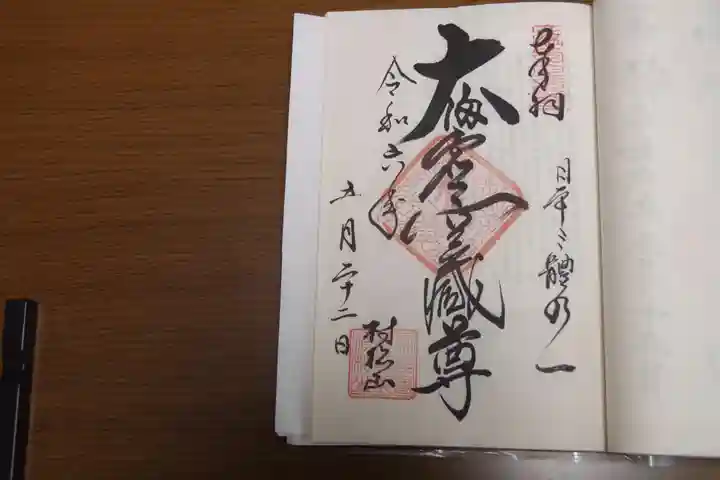 奉拝
日本三體ノ一
大満虚空蔵尊
令和六年
五月二十二日
村松山